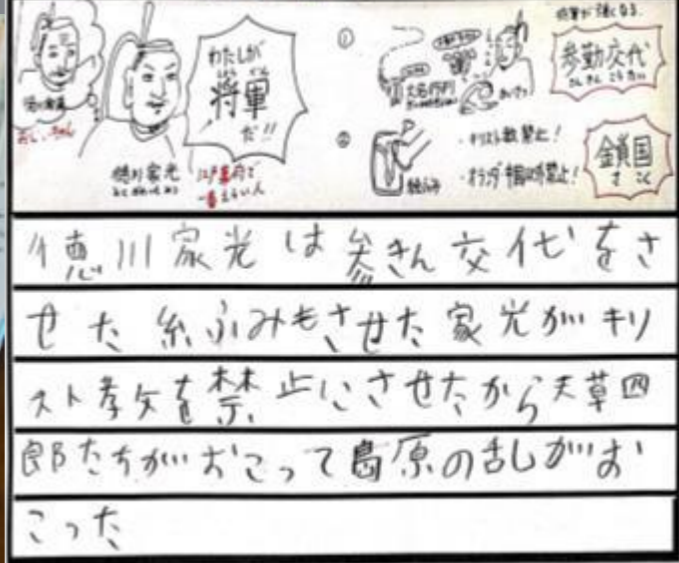 わたしが
将軍
だ!!
おじいちゃん
徳川家光
江戸幕府で
一番えらい人
①
将軍が強くなる
参勤交代
さんきんこうたい
②
絵ふみ
・キリスト教禁止!
・オランダ 中国以外禁止!
鎖国
さこく
徳川家光は参きん交代をさ
せた 絵ふみもさせた 家光がキリ
スト孝攵を禁止にさせたから天草四
郎たちがおこって島原の乱がお
こった